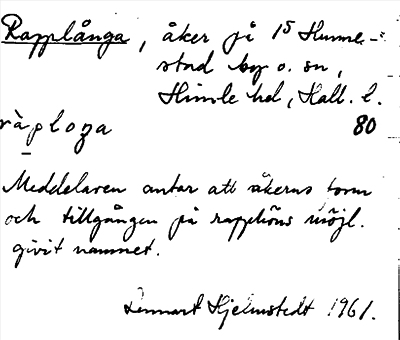 Rapplånga, åker på 15 Humle-
stad by o. sn,
Himle hd, Hall. l.
ràploga 80
Meddelaren antar att åkerns form
och tillgången på rapphöns möjl.
givit namnet.
Lennart Hjelmstedt 1961.